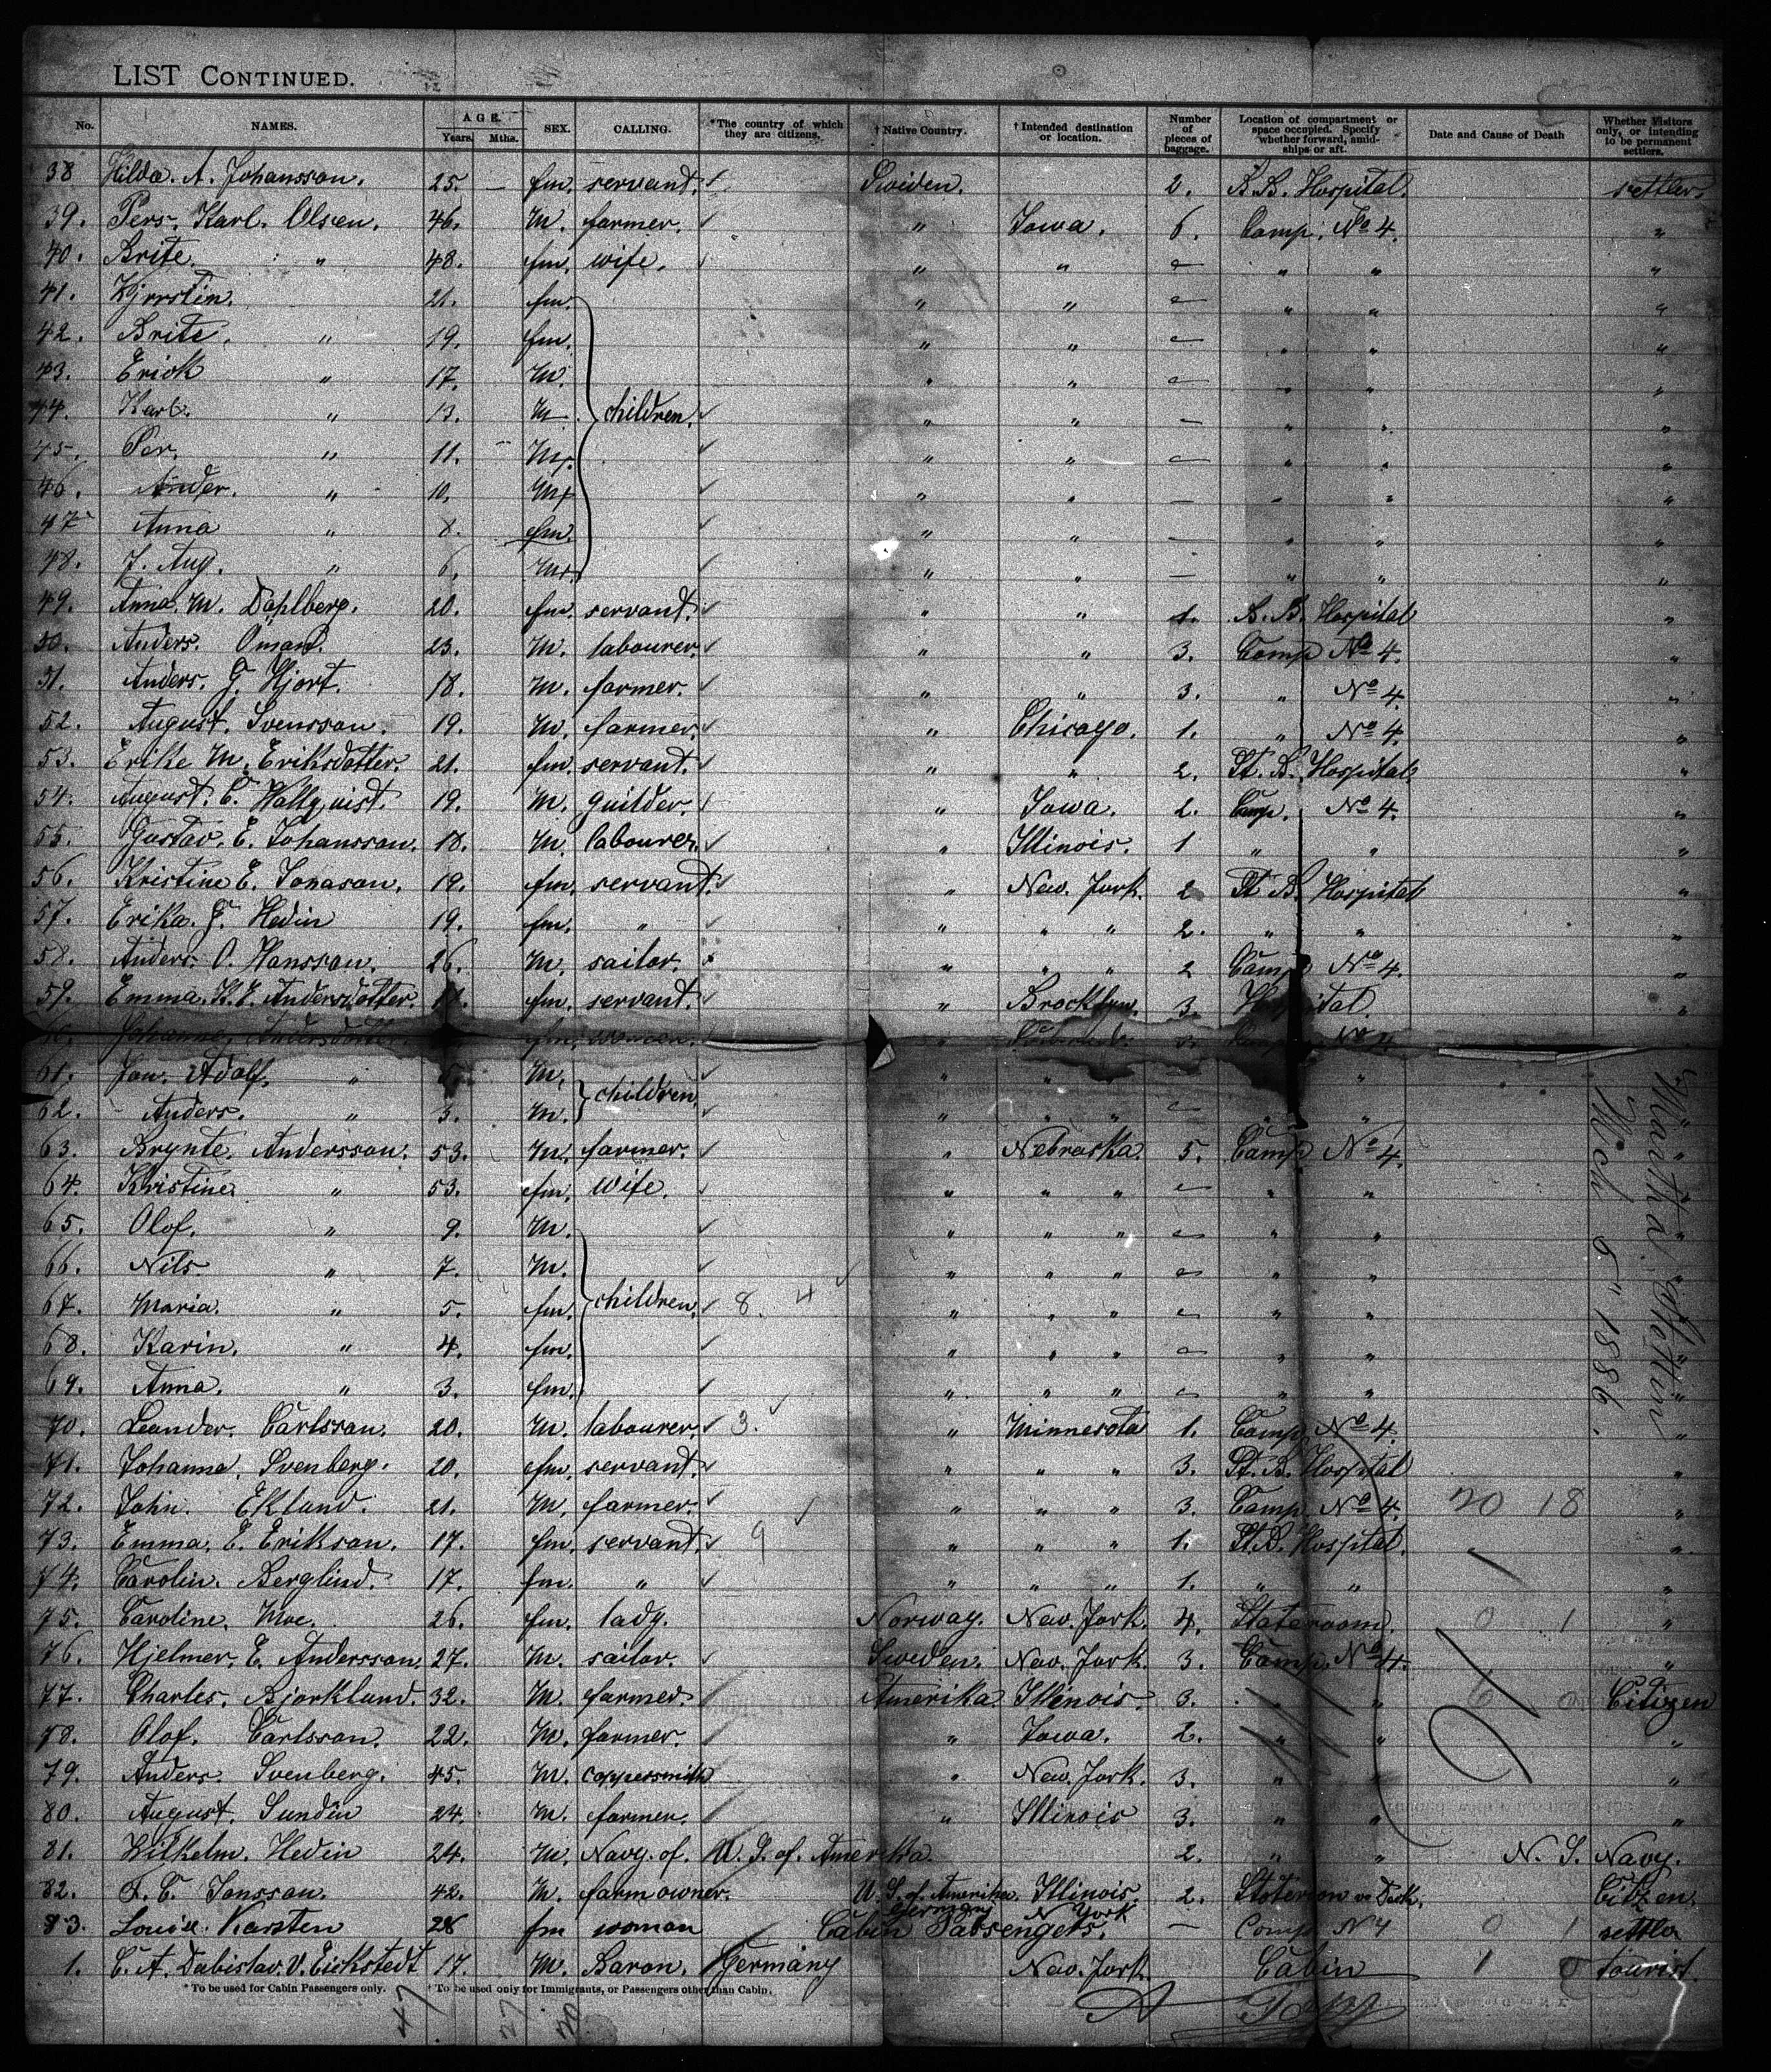 LIST CONTINUED.
No. NAMES. AGE. Years. Mths. SEX. CALLING. *The country of which they are citizens. † Native Country. † Intended destination or location. Number of pieces of baggage. Location of compartment or space occupied. Specify whether forward, amid-ships or aft. Date and Cause of Death Whether Visitors only, or intending to be permanent settlers.
38 Hilda. A. Johansson. 25. — fm. servant. Sweiden. 2. B. Hospital. settler.
39. Pers. Karl. Olsen. 46. M. farmer. " Iowa. 6. Comp. No 4. "
40. Brite. " 48. fm. wife. " " " " "
41. 21. fm. " " " " "
42. Brite. " 19. fm. " " " " "
43. Erick " 17. M. " " " " "
44. Karl. " 13. M. children. " " — " " "
45. Per. " 11. M. " " — " " "
46. Ander. " 10. M. " " — " " "
47 Anna " 8. fm. " " — " " "
48. J. Aug. " 6. M. " " — " " "
49. Anna M. Dahlberg. 20. fm. servant. " " 1. B. Hospital "
50. Anders. Oman. 23. M. labourer. " " 3. Comp No 4. "
51. Anders. G. Hjort. 18. M. farmer. " " 3. " No 4. "
52. August. Svensson. 19. M. farmer. " Chicago. 1. " No 4. "
53. Erike M. Eriksdotter. 21. fm. servant. " " 2. St. B. Hospital "
54. August. C. Hallqvist. 19. M. guilder. " Iowa. 2. Comp. No 4. "
55. Gustav. E. Johansson. 18. M. labourer. " Illinois. 1 " " "
56. Kristine E. Jonason. 19. fm. servant. " New. York. 2 St B. Hospital "
57. Erika. G. Hedin 19. fm. " " " " 2. " " "
58. Anders. O. Hansson. 26. M. sailor. " " " 2 Comp No 4. "
59. Emma. K. E. Andersdotter. fm. servant. " Brocklyn. 3. Hospital. "
Johanna. Andersdotter. fm.
61. Jon. Adolf. " M. " " "
62. Anders. " 3. M. children. " " " " "
63. Brynte. Andersson. 53. M. farmer. " Nebraska. 5. Comp No 4. "
64. Kristine " 53. fm. wife. " " " " "
65. Olof. " 9. M. " " " " "
66. Nils. " 7. M. " " " " "
67. Maria. " 5. fm. children. 8. 4 " " " " "
68. Karin. " 4. fm. " " " " "
69. Anna. " 3. fm. " " " " "
Mch 6" 1886.
70. Leander. Carlsson. 20. M. labourer. 3. " Minnesota 1. Comp No 4. "
71. Johanna. Svenberg. 20. fm. servant. " " " 3. St. B. Hospital "
72. John. Eklund. 21. M. farmer. " " " 3. Comp No 4. 20 18 "
73. Emma. E. Erikson. 17. fm. servant. 9 " " " 1. St. B. Hospital. "
74. Carolin. Berglind. 17. fm. " " " " 1. " " "
75. Caroline. Moe. 26. fm. lady. Norway. New. York. 4. Stateroom. 0 1 "
76. Hjelmer. E. Andersson. 27. M. sailor. Sweden. New. York. 3. Comp. No 4. "
77. Charles. Bjorklund. 32. M. farmer. Amerika Illinois. 3. " " 6 0 Citizen
78. Olof. Carlsson. 22. M. farmer. " Iowa. 2. " " "
79. Anders. Svenberg. 45. M. coppersmith " New. York. 3. " " "
80. August. Sundin 24. M. farmer. " Illinois 3. " " "
81. Wilhelm. Hedin 24. M. Navy. of. U. S. of. Amerika. 2. " " N. S. Navy.
82. F. C. Jonsson. 42. M. farm owner. U. S. of Amerika. Illinois. 2. Citzen.
83. Louise Karsten 28 fm woman Germany N York — Comp N 4 0 1 settler
Cabin Passengers.
1. C. A. Dubislav. V. Eickstedt 17. M. Baron. Germany New. York Cabin 1 0 tourist.
* To be used for Cabin Passengers only. † To be used only for Immigrants, or Passengers other than Cabin.
47 27 20